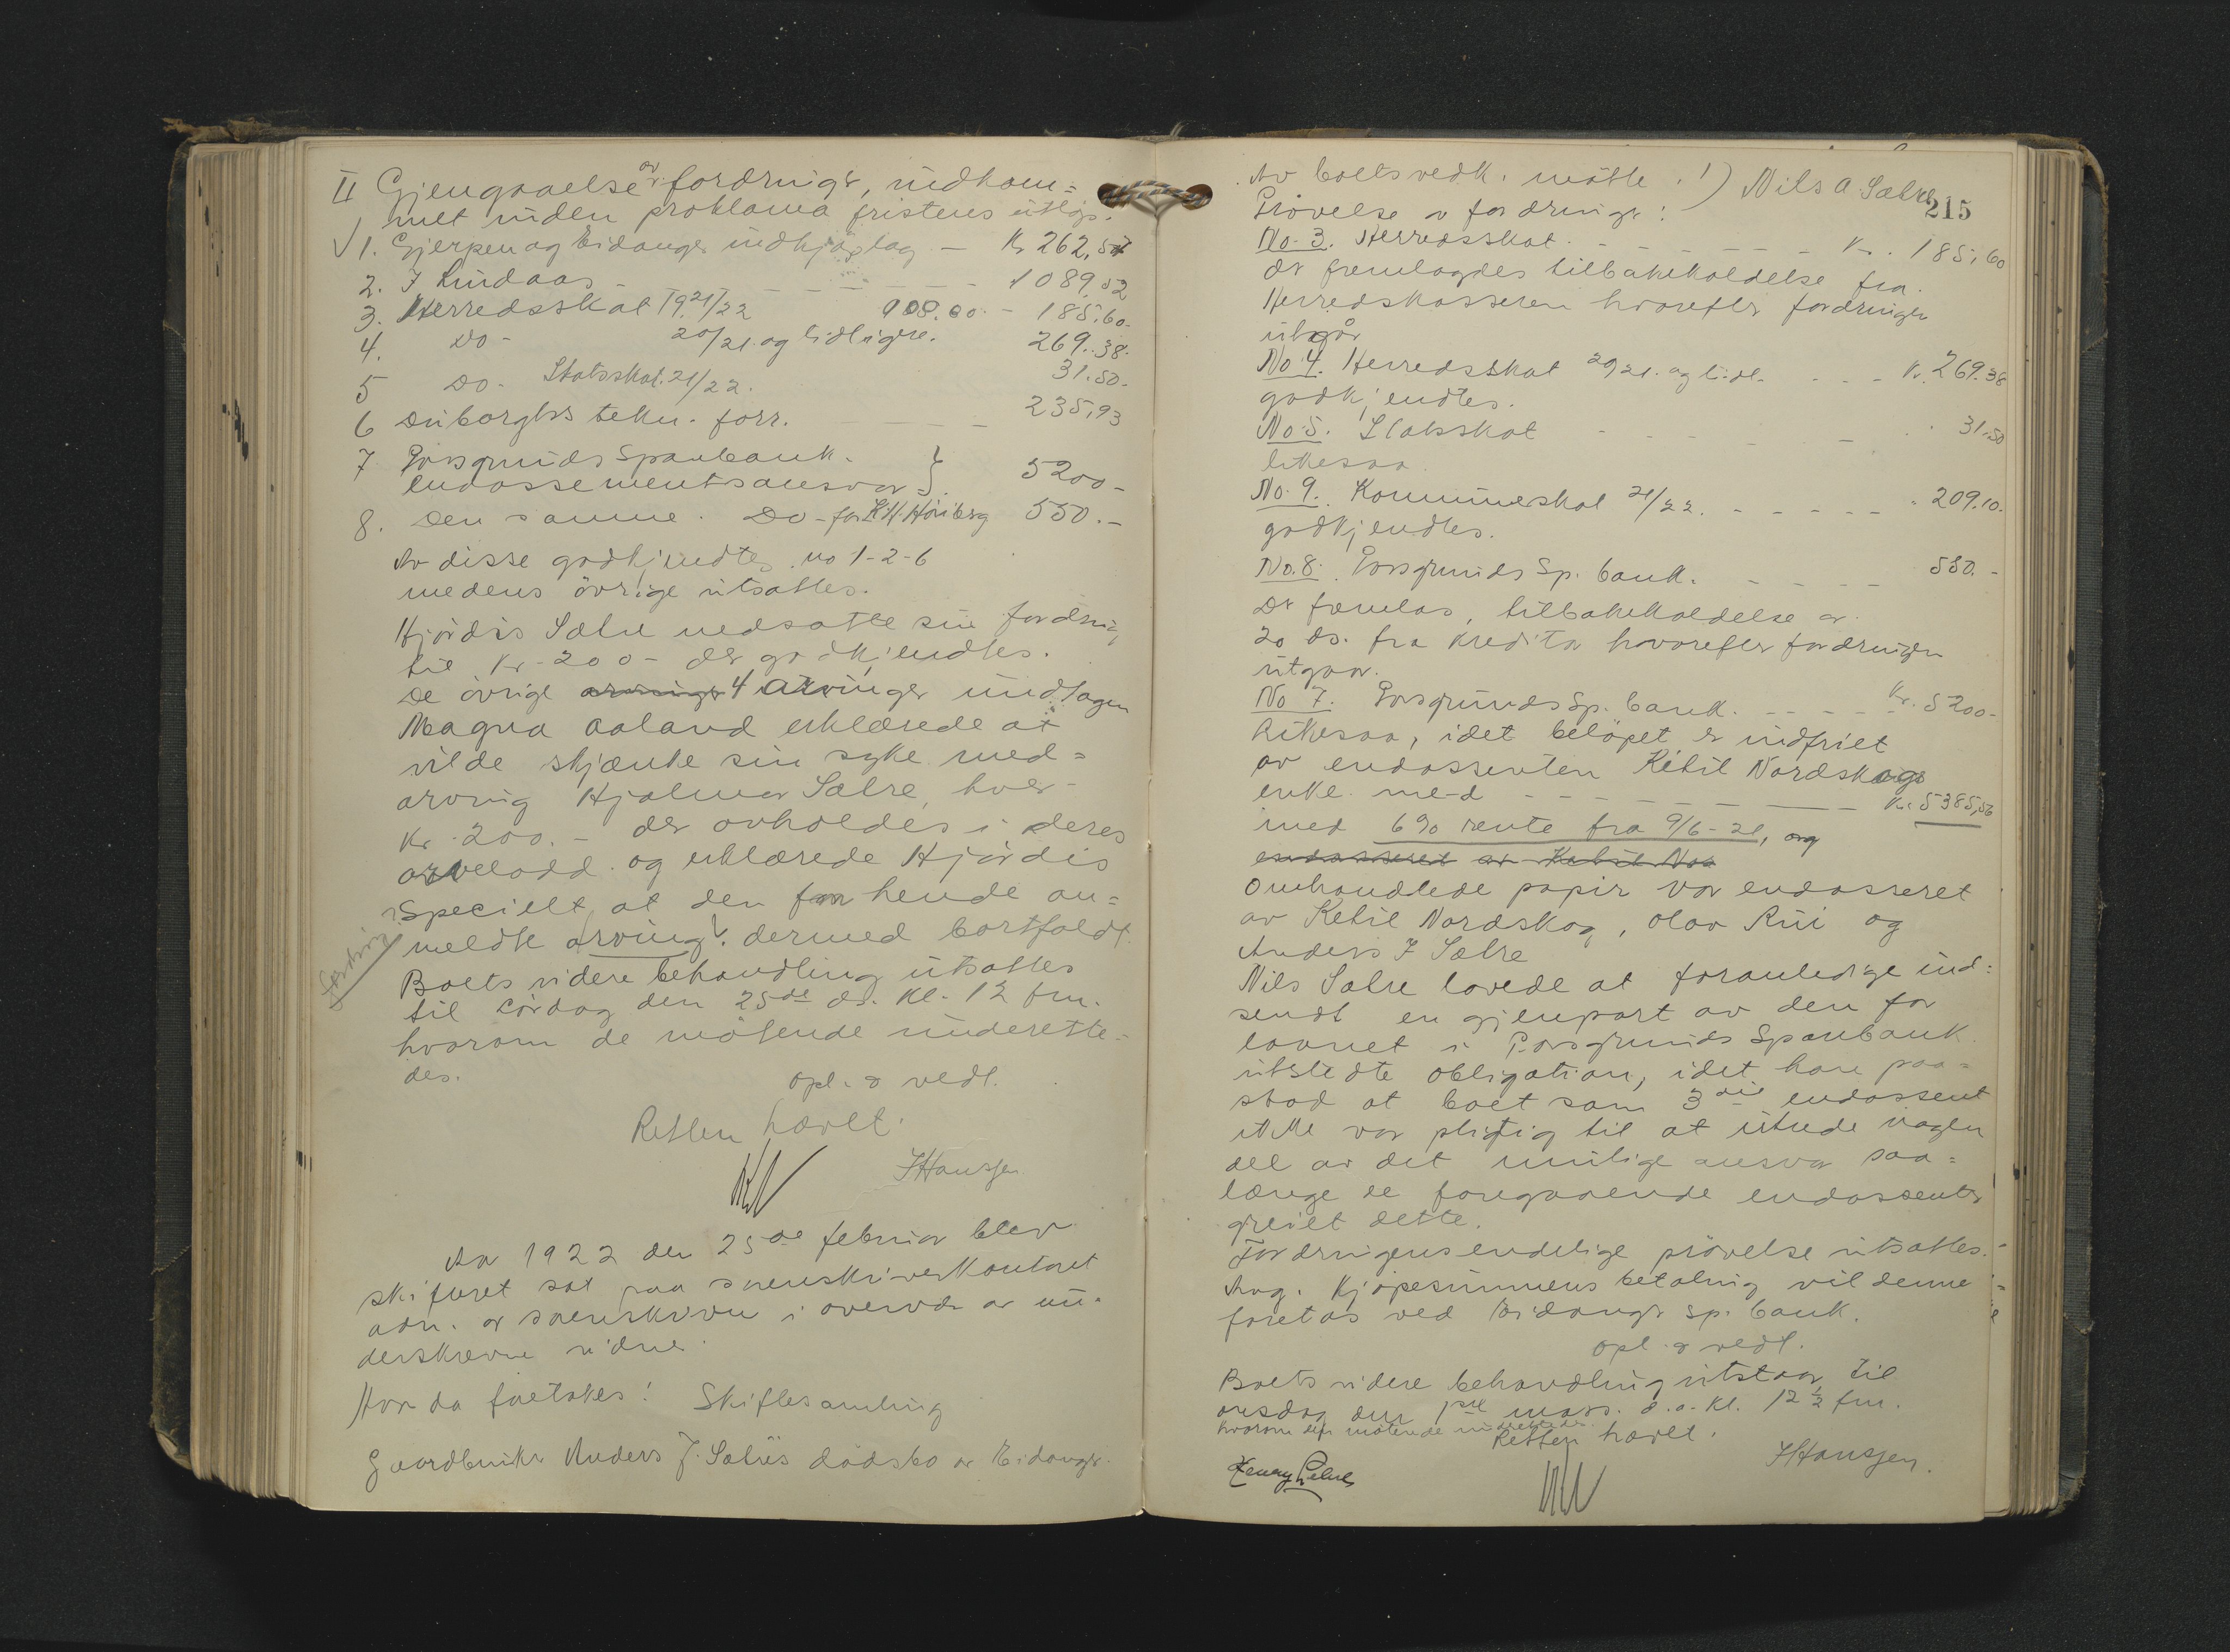 II Gjengaaelse av fordringer, indkom=
met inden proklama fristens utløp.
√ 1. Gjerpen og Eidanger indkjøpslag - Kr 262,57
2. J Lindaas - - - - - - - 1089,52
3. Herredsskat 1921/22 908.00 - 185,60-
4. Do- 20/21 og tidligere. 269.38.
5 Do- Statsskat 21/22. 31.50-
6 Duborghs tekn. forr. - - - - 235,93
7 Porsgrunds Sparebank.
endossementsansvar } 5200-
8. Den samme. Do- for H. Høiberg 550.-
Av disse godkjendtes no 1-2-6
medens övrige utsattes.
Hjördis Sælre nedsatte sin fordring
til Kr. 200- der godkjendtes.
De övrige arvinger 4 Arvinger undtagen
Magna Aaland erklærede at
vilde skjænke sin syke med=
arving Hjalmar Sælre, hver-
Kr. 200.- der avholdes i deres
arvelodd og erklærede Hjördis
Specielt at den for hende an=
meldte arving? dermed bortfaldt.
fordring
Boets videre behandling utsattes
til Lördag den 25de ds. Kl. 12 fm.
hvorom de mötende underrette-
des.
opl. & vedt.
Retten hævet.
JHanssen
Aar 1922 den 25de februar blev
skifteret sat paa sorenskriverkontoret
adm. av sorenskriveren i overvær av un-
derskrevne vidne.
Hvor da foretokes! Skiftesamling
Gaardbruker Anders J. Sælres dödsbo av Eidanger.
215
Av boets vedk. mötte. 1) Nils A. Sælre
Prövelse av fordringer:
No. 3. Herredsskat. - - - - - - - Kr. 185,60
Der fremlagdes tilbakekaldelse fra
Herredskasseren hvorefter fordringen
utgår
No. 4. Herredsskat 20/21. og tidl. - - - Kr. 269.38
godkjendtes.
No. 5. Statsskat - - - - - - 31.50
likesaa.
No. 9. Kommuneskat 21/22. - - - - - 209.10.
godkjendtes.
No. 8. Porsgrunds Sp. bank. - - - - 550.-
Der fremlas, tilbakekaldelse av
20 ds. fra kreditor hvorefter fordringen
utgaar.
No 7. Porsgrunds Sp. bank. - - - - - Kr. 5200-
Likesaa, idet belöpet er indfriet
av endossenten Ketil Nordskogs
enke med - - - - - - - Kr. 5385,56
med 6% rente fra 9/6-21, og
endosseret av Ketil Nor
Omhandlede papir var endosseret
av Ketil Nordskog, Olav Rui og
Anders J Sælre
Nils Sælre lovede at foranledige ind=
sendt en gjenpart av den for
laanet i Porsgrunds Sparebank
utstedte obligation, idet han paa=
stod at boet som 3die endossent
ikke var pligtig til at utrede nogen
del av det mulige ansvar saa=
længe de foregaaende endossenter
greiet dette.
Fordringens endelige prövelse utsattes.
Ang. Kjöpesummens betaling vil denne
foretas ved Eidanger Sp. bank.
opl. & vedt.
Boets videre behandling utstaar til
onsdag den 1ste mars. d.a. Kl. 12 ½ fm.
hvorom den mötende underrettedes.
Retten hævet.
JHanssen.